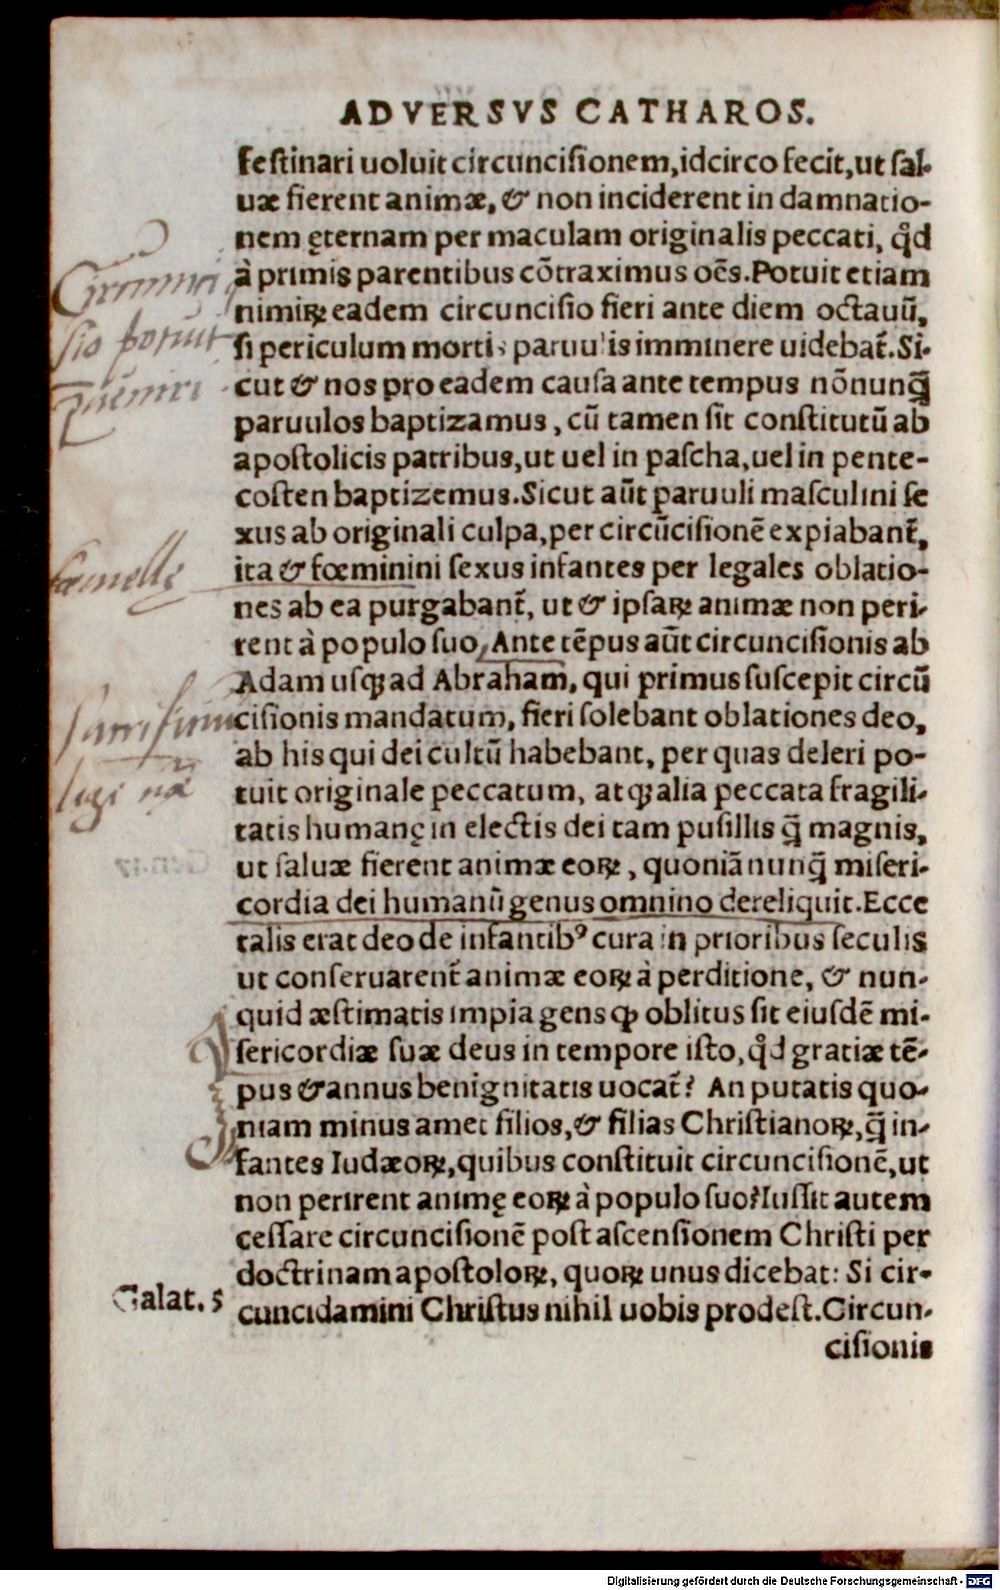 ADVERSVS CATHAROS.
festinari uoluit circuncisionem, idcirco fecit, ut sal-
uæ fierent animæ, & non inciderent in damnatio-
nem ęternam per maculam originalis peccati, qd̓
à primis parentibus cõtraximus oẽs. Potuit etiam
nimiꝝ eadem circuncisio fieri ante diem octauũ,
si periculum mortis paruulis imminere uidebat̃. Si-
cut & nos pro eadem causa ante tempus nõnunq̃
paruulos baptizamus, cũ tamen sit constitutũ ab
apostolicis patribus, ut uel in pascha, uel in pente-
costen baptizemus. Sicut aũt paruuli masculini se
xus ab originali culpa, per circũcisionẽ expiabant̃,
ita & fœminini sexus infantes per legales oblatio-
nes ab ea purgabant̃, ut & ipsaꝝ animæ non peri-
rent à populo suo, Ante tẽpus aũt circuncisionis ab
Adam usqꝫ ad Abraham, qui primus suscepit circũ
cisionis mandatum, fieri solebant oblationes deo,
ab his qui dei cultũ habebant, per quas deleri po-
tuit originale peccatum, atqꝫ alia peccata fragili-
tatis humanę in electis dei tam pusillis q̃ magnis,
ut saluæ fierent animæ eoꝝ, quoniã nunq̃ miseri-
cordia dei humanũ genus omnino dereliquit. Ecce
talis erat deo de infantibꝰ cura in prioribus seculis
ut conseruarent̃ animæ eoꝝ à perditione, & nun-
quid æstimatis impia gens ꝙ oblitus sit eiusdẽ mi-
sericordiæ suæ deus in tempore isto, qd̓ gratiæ tẽ-
pus & annus benignitatis uocat̃? An putatis quo-
niam minus amet filios, & filias Christianoꝝ, q̃ in-
fantes Iudæoꝝ, quibus constituit circuncisionẽ, ut
non perirent animę eoꝝ à populo suo? Iussit autem
cessare circuncisionẽ post ascensionem Christi per
doctrinam apostoloꝝ, quoꝝ unus dicebat: Si cir-
cuncidamini Christus nihil uobis prodest. Circun-
cisionis
Circunci
sio potuit
p̃ueniri
fœmellę
Galat. 5
Digitalisierung gefördert durch die Deutsche Forschungsgemeinschaft - DFG